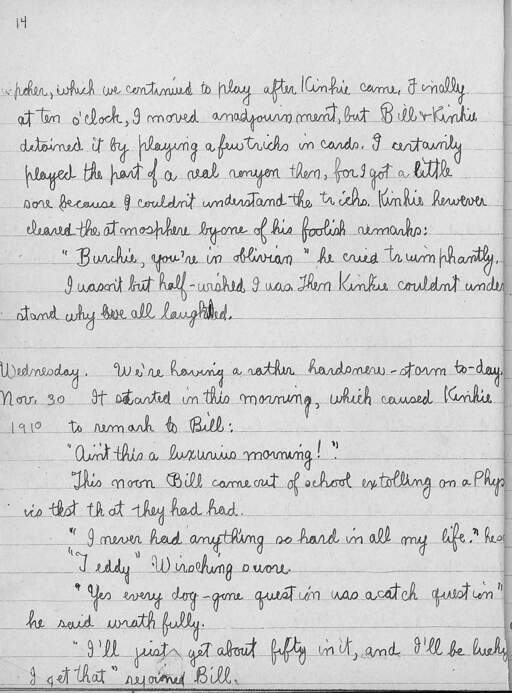 14
poker, which we continued to play after Kinkie came. Finally
at ten o'clock, I moved an adjournment, but Bill & Kinkie
detained it by playing a few tricks in cards. I certainly
played the part of a real then, for I got a little
sore because I couldn't understand the tricks. Kinkie however
cleared the atmosphere by one of his foolish remarks:
"Burchie, you're in oblivian" he cried truimphantly.
I wasn't but half-wished I was. Then Kinkie couldn't under
stand why we all laughed.
Wednesday. We're having a rather hard snow-storm to-day.
Nov. 30 It started in this morning, which caused Kinkie
1910 to remark to Bill:
"Ain't this a luxurius morning!"
This noon Bill came out of school extolling on a Phys
ics test that they had had.
"I never had anything so hard in all my life."
"Teddy" Wirsching swore.
"Yes every dog-gone question was a catch question"
he said wrathfully.
"I'll just get about fifty in it, and I'll be lucky
I get that" rejoined Bill.